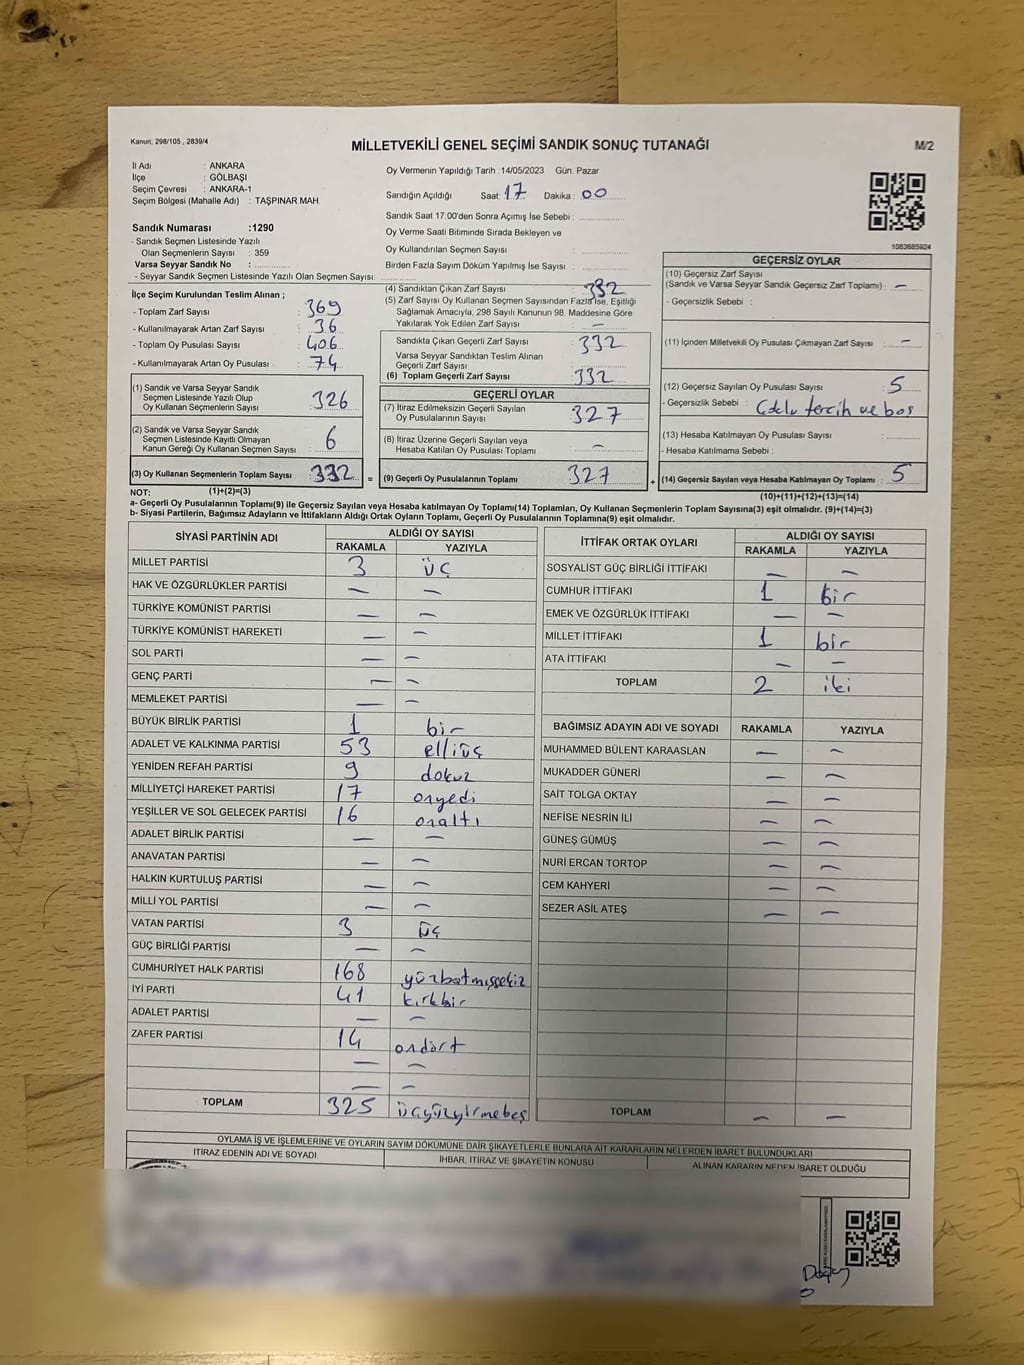 Kanun; 298/105 , 2839/4
MİLLETVEKİLİ GENEL SEÇİMİ SANDIK SONUÇ TUTANAĞI
M/2
İl Adı : ANKARA
İlçe : GÖLBAŞI
Seçim Çevresi : ANKARA-1
Seçim Bölgesi (Mahalle Adı) : TAŞPINAR MAH.
Oy Vermenin Yapıldığı Tarih : 14/05/2023 Gün: Pazar
Sandığın Açıldığı Saat: 17 Dakika : 00
Sandık Saat 17:00'den Sonra Açımış İse Sebebi :
Oy Verme Saati Bitiminde Sırada Bekleyen ve
Oy Kullandırılan Seçmen Sayısı :
Birden Fazla Sayım Döküm Yapılmış İse Sayısı :
1083685924
Sandık Numarası :1290
- Sandık Seçmen Listesinde Yazılı
Olan Seçmenlerin Sayısı : 359
Varsa Seyyar Sandık No :
- Seyyar Sandık Seçmen Listesinde Yazılı Olan Seçmen Sayısı:
İlçe Seçim Kurulundan Teslim Alınan ;
- Toplam Zarf Sayısı : 369
- Kullanılmayarak Artan Zarf Sayısı : 36
- Toplam Oy Pusulası Sayısı : 406
- Kullanılmayarak Artan Oy Pusulası : 74
(1) Sandık ve Varsa Seyyar Sandık
Seçmen Listesinde Yazılı Olup
Oy Kullanan Seçmenlerin Sayısı : 326
(2) Sandık ve Varsa Seyyar Sandık
Seçmen Listesinde Kayıtlı Olmayan
Kanun Gereği Oy Kullanan Seçmen Sayısı : 6
(3) Oy Kullanan Seçmenlerin Toplam Sayısı : 332 =
(4) Sandıktan Çıkan Zarf Sayısı : 332
(5) Zarf Sayısı Oy Kullanan Seçmen Sayısından Fazla İse, Eşitliği
Sağlamak Amacıyla, 298 Sayılı Kanunun 98. Maddesine Göre
Yakılarak Yok Edilen Zarf Sayısı : –
Sandıkta Çıkan Geçerli Zarf Sayısı : 332
Varsa Seyyar Sandıktan Teslim Alınan
Geçerli Zarf Sayısı :
(6) Toplam Geçerli Zarf Sayısı : 332
GEÇERLİ OYLAR
(7) İtiraz Edilmeksizin Geçerli Sayılan
Oy Pusulalarının Sayısı : 327
(8) İtiraz Üzerine Geçerli Sayılan veya
Hesaba Katılan Oy Pusulası Toplamı : –
(9) Geçerli Oy Pusulalarının Toplamı : 327 +
GEÇERSİZ OYLAR
(10) Geçersiz Zarf Sayısı
(Sandık ve Varsa Seyyar Sandık Geçersiz Zarf Toplamı) : –
- Geçersizlik Sebebi :
(11) İçinden Milletvekili Oy Pusulası Çıkmayan Zarf Sayısı : –
(12) Geçersiz Sayılan Oy Pusulası Sayısı : 5
- Geçersizlik Sebebi : tercih ve boş
(13) Hesaba Katılmayan Oy Pusulası Sayısı :
- Hesaba Katılmama Sebebi :
(14) Geçersiz Sayılan veya Hesaba Katılmayan Oy Toplamı : 5
NOT: (1)+(2)=(3)
(10)+(11)+(12)+(13)=(14)
a- Geçerli Oy Pusulalarının Toplamı(9) ile Geçersiz Sayılan veya Hesaba katılmayan Oy Toplamı(14) Toplamları, Oy Kullanan Seçmenlerin Toplam Sayısına(3) eşit olmalıdır. (9)+(14)=(3)
b- Siyasi Partilerin, Bağımsız Adayların ve İttifakların Aldığı Ortak Oyların Toplamı, Geçerli Oy Pusulalarının Toplamına(9) eşit olmalıdır.
SİYASİ PARTİNİN ADI ALDIĞI OY SAYISI
RAKAMLA YAZIYLA
MİLLET PARTİSİ 3 üç
HAK VE ÖZGÜRLÜKLER PARTİSİ – –
TÜRKİYE KOMÜNİST PARTİSİ – –
TÜRKİYE KOMÜNİST HAREKETİ – –
SOL PARTİ – –
GENÇ PARTİ – –
MEMLEKET PARTİSİ – –
BÜYÜK BİRLİK PARTİSİ 1 bir
ADALET VE KALKINMA PARTİSİ 53 elliüç
YENİDEN REFAH PARTİSİ 9 dokuz
MİLLİYETÇİ HAREKET PARTİSİ 17 onyedi
YEŞİLLER VE SOL GELECEK PARTİSİ 16 onaltı
ADALET BİRLİK PARTİSİ – –
ANAVATAN PARTİSİ – –
HALKIN KURTULUŞ PARTİSİ – –
MİLLİ YOL PARTİSİ – –
VATAN PARTİSİ 3 üç
GÜÇ BİRLİĞİ PARTİSİ – –
CUMHURİYET HALK PARTİSİ 168 yüzbatmışsekiz
İYİ PARTİ 41 kırkbir
ADALET PARTİSİ – –
ZAFER PARTİSİ 14 ondört
– –
– –
TOPLAM 325 üçyüzyirmebeş
İTTİFAK ORTAK OYLARI ALDIĞI OY SAYISI
RAKAMLA YAZIYLA
SOSYALİST GÜÇ BİRLİĞİ İTTİFAKI – –
CUMHUR İTTİFAKI 1 bir
EMEK VE ÖZGÜRLÜK İTTİFAKI – –
MİLLET İTTİFAKI 1 bir
ATA İTTİFAKI – –
TOPLAM 2 iki
BAĞIMSIZ ADAYIN ADI VE SOYADI RAKAMLA YAZIYLA
MUHAMMED BÜLENT KARAASLAN – –
MUKADDER GÜNERİ – –
SAİT TOLGA OKTAY – –
NEFİSE NESRİN İLİ – –
GÜNEŞ GÜMÜŞ – –
NURİ ERCAN TORTOP – –
CEM KAHYERİ – –
SEZER ASİL ATEŞ – –
TOPLAM – –
OYLAMA İŞ VE İŞLEMLERİNE VE OYLARIN SAYIM DÖKÜMÜNE DAİR ŞİKAYETLERLE BUNLARA AİT KARARLARIN NELERDEN İBARET BULUNDUKLARI
İTİRAZ EDENİN ADI VE SOYADI İHBAR, İTİRAZ VE ŞİKAYETİN KONUSU ALINAN KARARIN NEDEN İBARET OLDUĞU